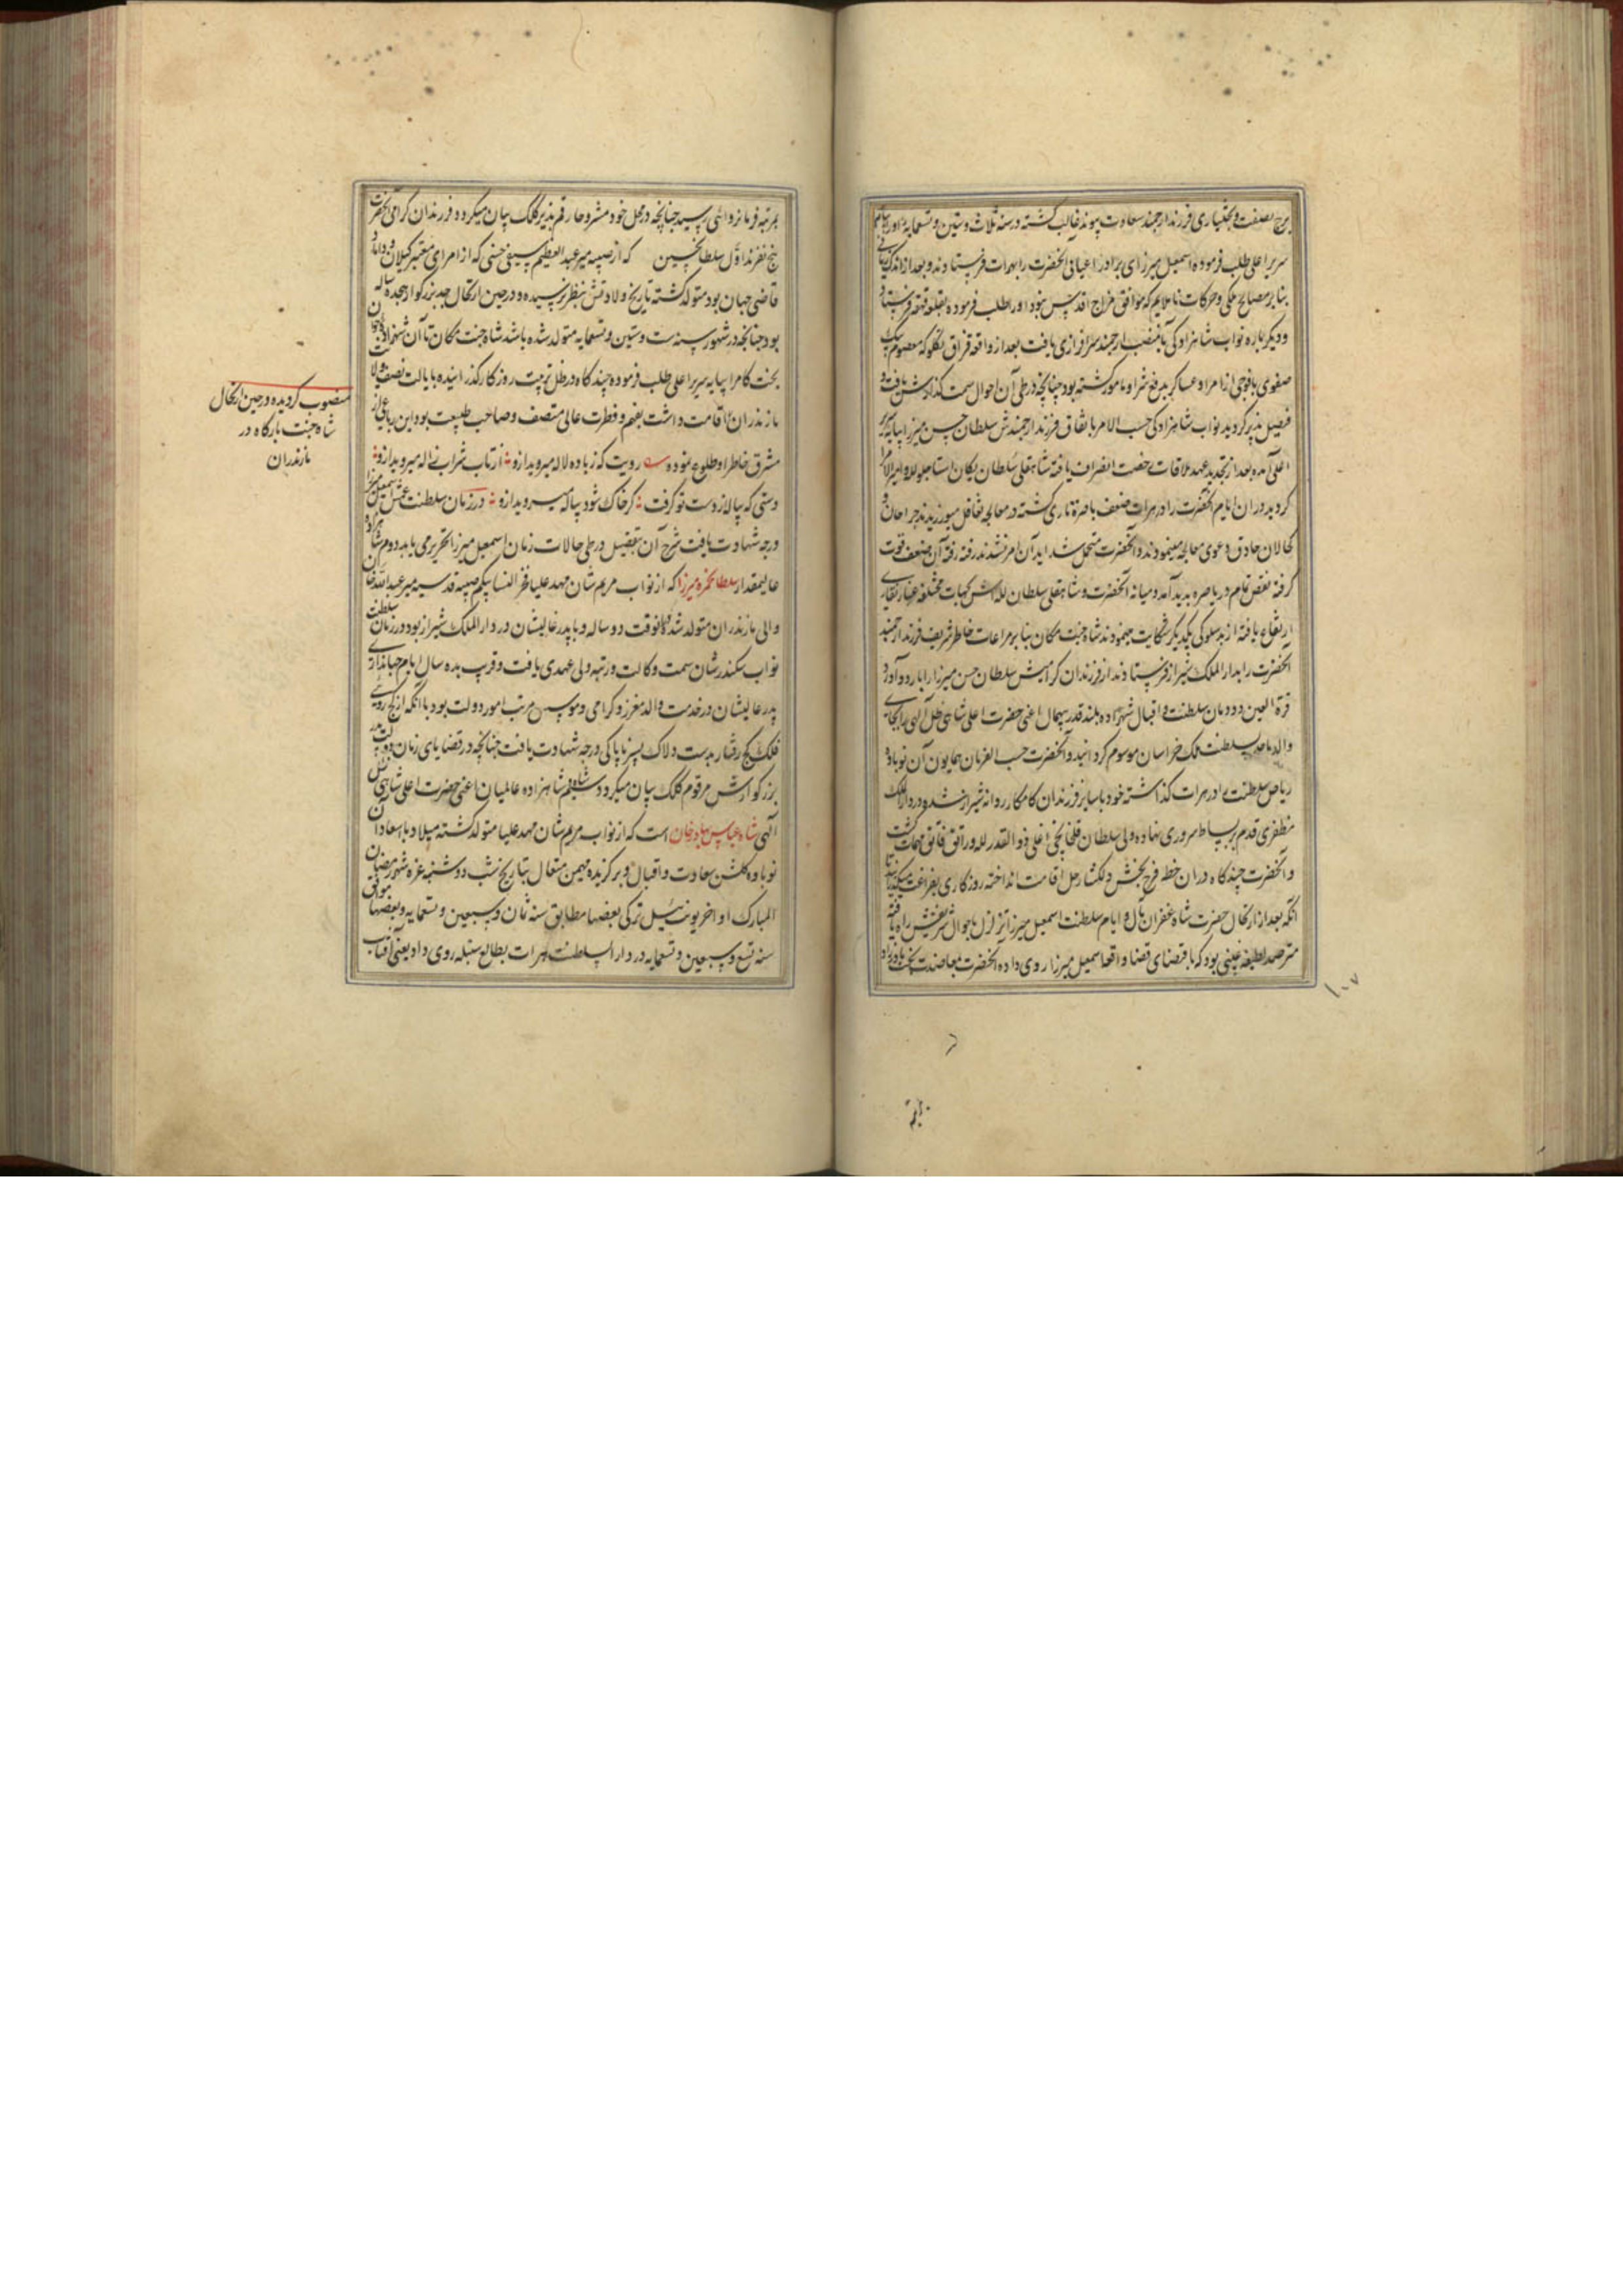 برج بصفت و بختیاری فرزند ارجمند سعادت پیوند غالب گشته در سنه ثلاث و ستین و تسعمایه او را بپایه
سریر اعلی طلب فرموده اسمعیل میرزای برادر اعیانی آنحضرت را بهرات فرستادند و بعد از اندک زمانی
بنابر مصالح ملکی و حرکات ناملایم که موافق مزاج اقدس نبود او را طلب فرموده بقلعه قهقهه فرستاد
و دیگر باره نواب شاهزادگی بآن منصب ارجمند سرافرازی یافت بعد از واقعه قزاق تکلو که معصوم بیک
صفوی با فوجی از امرا و عساکر بدفع شر او مامور گشته بود چنانچه در طی آن احوال سمت گذارش یافت و
فیصل پذیر گردید نواب شاهزادگی حسب الامر باتفاق فرزند ارجمندش سلطان حسن میرزا بپایه سریر
اعلی آمده بعد از تجدید عهد ملاقات رخصت انصراف یافته شاهقلی سلطان یکان استاجلو لله و امیر الامرا
گردید در ان ایام آنحضرت را در هرات ضعف باصرة طاری گشته در معالجه تغافل میورزیدند جراحان و
کحالان حاذق دعوی معالجه مینمودند و آنحضرت متحمل شداید آن امر نشدند رفته رفته آن ضعف قوت
گرفته نقص تمام در باصره پدید آمد و میانه آنحضرت و شاهقلی سلطان لله اش بجهات مختلفه غبار نقاری
ارتفاع یافته از بدسلوکی یکدیگر شکایت مینمودند شاه جنت مکان بنابر مراعات خاطر شریف فرزند ارجمند
آنحضرت را بدار الملک شیراز فرستادند از فرزندان گرامیش سلطان حسن میرزا را باردو آورد و
قرة العین دودمان سلطنت و اقبال شهزاده بلند قدر بیهمال اعنی حضرت اعلی شاهی ظل الهی را بجای
والد ماجد بسلطنت ملک خراسان موسوم گردانید و آنحضرت حسب الفرمان همایون آن نوباوه
ریاض سلطنت را در هرات گذاشته خود با سایر فرزندان کامکار روانه شیراز شد و در دار الملک
مظفری قدم بر بساط سروری نهاده ولی سلطان قلخانچی اغلی ذو القدر لله و راتق و فاتق مهمات گشت
و آنحضرت چند گاه در ان خطه فرح بخش دلگشا رحل اقامت انداخته روزگاری بفراغت میگذرانید تا
آنکه بعد از ارتحال حضرت شاه غفران مآل و ایام سلطنت اسمعیل میرزا تزلزل باحوال شریفش راه یافته
مترصد لطیفه غیبی بود که باقتضای قضا واقعه اسمعیل میرزا روی داده آنحضرت بمعاضدت بخت مادرزاد
۱۰۷
بمرتبه فرمانروائی رسید چنانچه در محل خود مشروحا رقم پذیر کلک بیان میگردد فرزندان گرامی آنحضرت
پنج نفرند اول سلطان حسین که از صبیه میر عبد العظیم سیفی حسنی که از امرای معتبر گیلان و داماد
قاضی جهان بود متولد گشته تاریخ ولادتش بنظر نرسیده و در حین ارتحال جد بزرگوار هجده ساله
بود چنانچه در شهور سنه ست و ستین و تسعمایه متولد شده باشد شاه جنت مکان تا آن شهزاده جوان
بخت کامرا بپایه سریر اعلی طلب فرموده چند گاه در ظل تربیت روزگار گذرانیده بایالت نصف ولایت
مازندران اقامت داشت بفهم و فطرت عالی متصف و صاحب طبیعت بود این رباعی از
مشرق خاطر او طلوع نموده رویت که ز باده لاله میروید ازو از تاب شراب ژاله میروید ازو
دستی که پیاله ز دست تو گرفت گر خاک شود پیاله میروید ازو در زمان سلطنت عمش اسمعیل میرزا
درجه شهادت یافت شرح آن بتفصیل در طی حالات زمان اسمعیل میرزا تحریر می یابد دوم شاهزاده
عالیمقدار سلطان حمزه میرزا که از نواب مریم شان مهد علیا فخر النسا بیگم صبیه قدسیه میر عبد الله خان
والی مازندران متولد شد در آنوقت دو ساله و با پدر عالیشان در دار الملک شیراز بود در زمان سلطنت
نواب سکندر شان سمت وکالت و رتبه ولی عهدی یافت و قرب بده سال ایام جهانداری
پدر عالیشان در خدمت والد معزز و گرامی و موسس مرتب امور دولت بود با آنکه از کج روی
فلک کج رفتار بدست دلاک پسر ناپاکی درجه شهادت یافت چنانچه در قضایای زمان دولت پدر
بزرگوارش مرقوم کلک بیان میگردد شاهزاده عالمیان اعنی حضرت اعلی شاهی ظل
الهی شاه عباس بهادر خان است که از نواب مریم شان مهد علیا متولد گشته میلاد با سعادت آن
نوباوه گلشن سعادت و اقبال و برگزیده مهیمن متعال بتاریخ شب دوشنبه غره شهر رمضان
المبارک اواخر یونت ئیل ترکی بعضها مطابق سنه ثمان و سبعین و تسعمایه و بعضها موافق
سنه تسع و سبعین و تسعمایه در دار السلطنت هرات بطالع سنبله روی داد یعنی آفتاب
منصوب گردیده در حین ارتحال
شاه جنت بارگاه در
مازندران